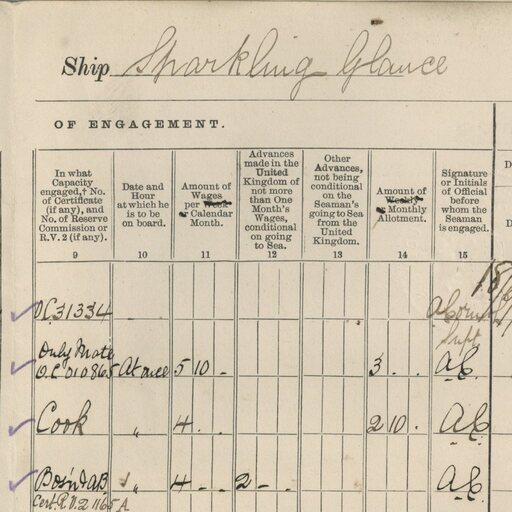 Ship Sparkling Glance
OF ENGAGEMENT.
In what
Capacity
engaged,† No.
of Certificate
(if any), and
No. of Reserve
Commission or
R.V. 2 (if any).
9
Date and
Hour
at which he
is to be
on board.
10
Amount of
Wages
per Week
or Calendar
Month.
11
Advances
made in the
United
Kingdom of
not more
than One
Month's
Wages,
conditional
on going
to Sea.
12
Other
Advances,
not being
conditional
on the
Seaman's
going to Sea
from the
United
Kingdom.
13
Amount of
Weekly
or Monthly
Allotment.
14
Signature
or Initials
of Official
before
whom the
Seaman
is engaged.
15
D
D
18
O.C 31334
Supt
Only Mate
O.C 010865 At once 5 10 - 3 . AC
Cook " 4 . . 2 10 . AC
Bos'n & AB " 4 - - 2 - - AC
Cert. R.V.2 1165 A